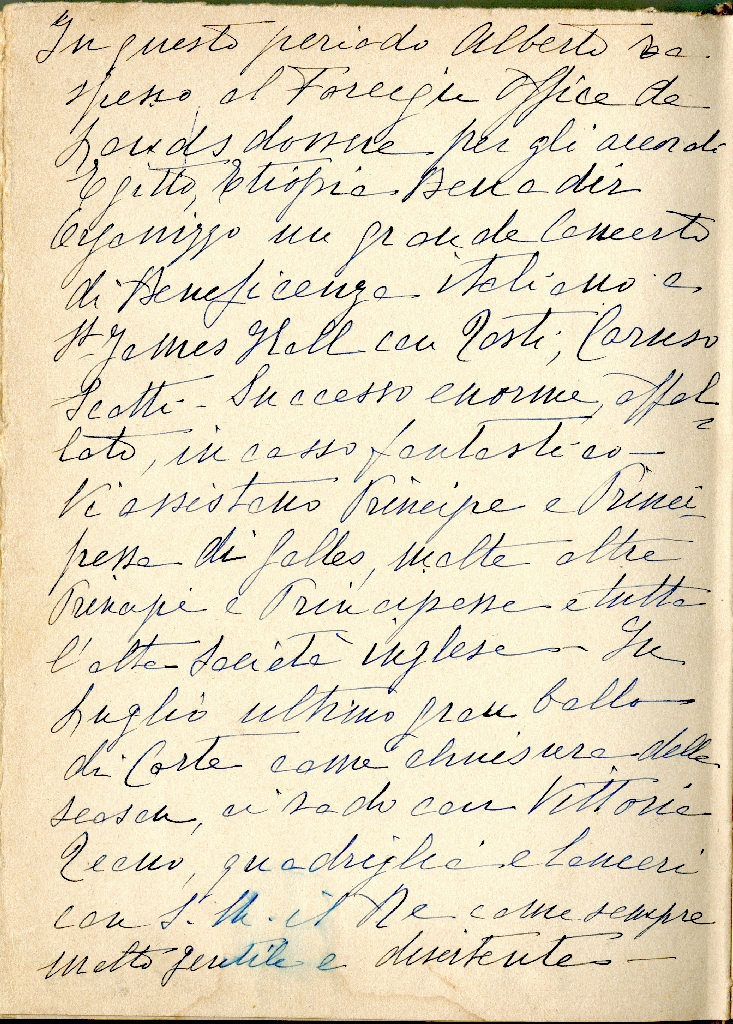 In questo periodo Alberto va
spesso al Foreign Office da
Landsdowne per gli accordi
Egitto, Etiopia Benadir
Organizzo un grande Concerto
di Beneficenza italiano a
St James Hall con Tosti, Caruso
Scotti - Successo enorme, affol-
lato, incasso fantastico -
Vi assistono Principe e Princi-
pessa di Galles, molte altre
Principi e Principesse e tutta
l'alta Società inglese - In
Luglio ultimo gran ballo
di Corte come chiusura della
season, ci vado con Vittoria
Teano, quadriglia e lanceri
con S. M. il Re come sempre
molto gentile e divertente -